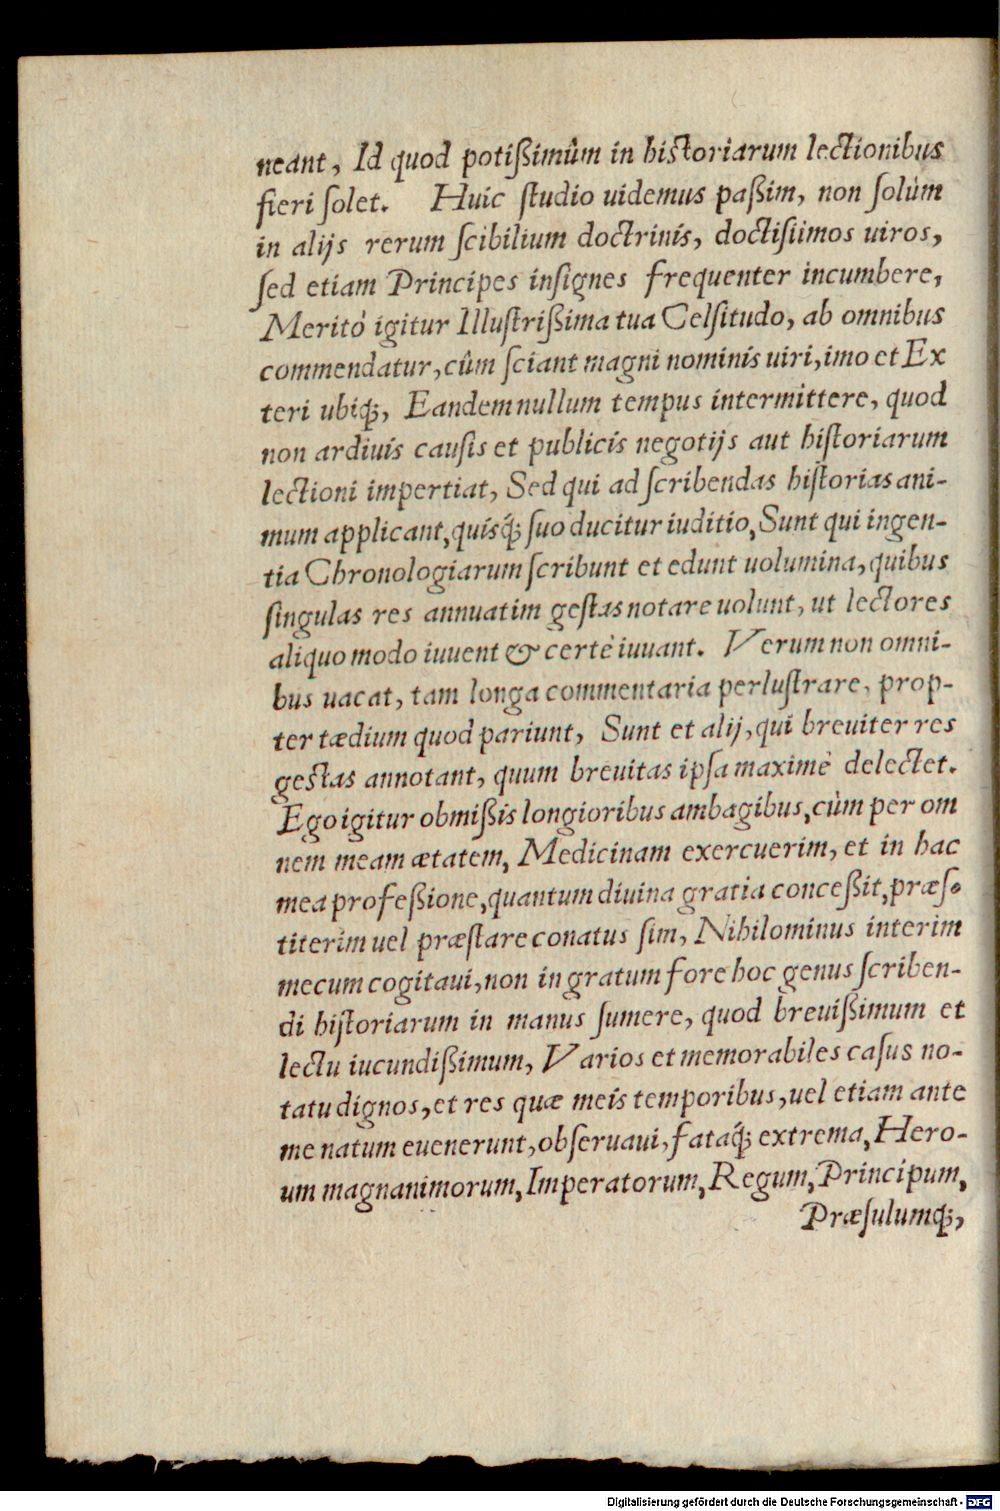 neant, Id quod potißimûm in historiarum lectionibus
fieri ſolet. Huic ſtudio uidemus paßim, non ſolùm
in alijs rerum ſcibilium doctrinis, doctiſiimos uiros,
ſed etiam Principes inſignes frequenter incumbere,
Meritò igitur Illuſtrißima tua Celſitudo, ab omnibus
commendatur, cûm ſciant magni nominis uiri, imo et Ex
teri ubiq́;, Eandem nullum tempus intermittere, quod
non ardiuis cauſis et publicis negotijs aut hiſtoriarum
lectioni impertiat, Sed qui ad ſcribendas hiſtorias ani-
mum applicant, quisq́; ſuo ducitur iuditio, Sunt qui ingen-
tia Chronologiarum ſcribunt et edunt uolumina, quibus
ſingulas res annuatim geſtas notare uolunt, ut lectores
aliquo modo iuuent & certè iuuant. Verum non omni-
bus uacat, tam longa commentaria perluſtrare, prop-
ter tædium quod pariunt, Sunt et alij, qui breuiter res
gestas annotant, quum breuitas ipſa maximè delectet.
Ego igitur obmißis longioribus ambagibus, cùm per om
nem meam ætatem, Medicinam exercuerim, et in hac
mea profeßione, quantum diuina gratia conceßit, præſ-
titerim uel præſtare conatus ſim, Nihilominus interim
mecum cogitaui, non in gratum fore hoc genus ſcriben-
di hiſtoriarum in manus ſumere, quod breuißimum et
lectu iucundißimum, Varios et memorabiles caſus no-
tatu dignos, et res quæ meis temporibus, uel etiam ante
me natum euenerunt, obſeruaui, fataq́; extrema, Hero-
um magnanimorum, Imperatorum, Regum, Principum,
Præſulumq́;,
Digitalisierung gefördert durch die Deutsche Forschungsgemeinschaft - DFG